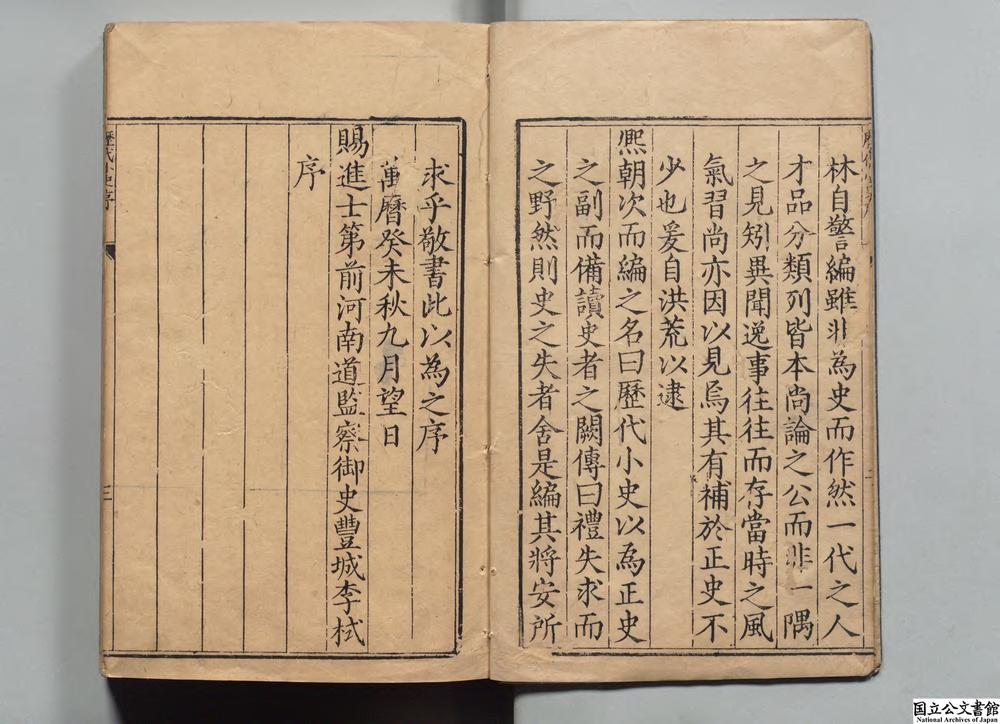 林自警編雖非為史而作然一代之人
才品分類列皆本尚論之公而非一隅
之見矧異聞逸事往往而存當時之風
氣習尚亦因以見焉其有補於正史不
少也爰自洪荒以逮
熈朝次而編之名曰歷代小史以為正史
之副而備讀史者之闕傳曰禮失求而
之野然則史之失者舍是編其將安所
求乎敬書此以為之序
萬曆癸未秋九月望日
賜進士第前河南道監察御史豐城李栻
序
歷代小史序
三
国立公文書館
National Archives of Japan